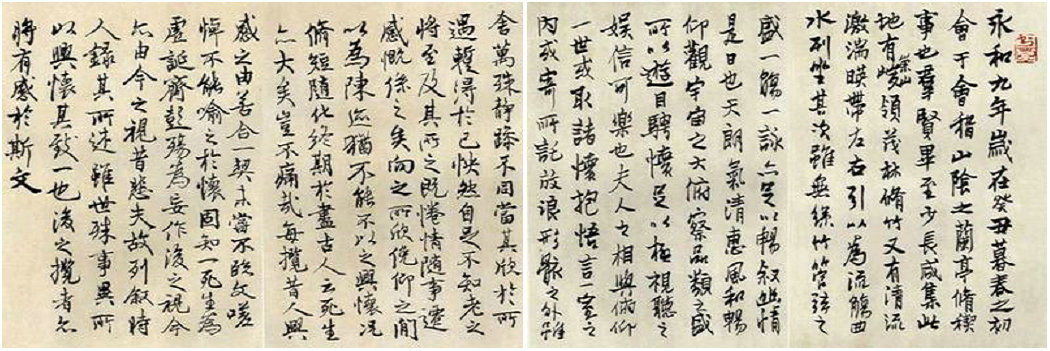 永和九年歲在癸丑暮春之初
會于會稽山陰之蘭亭脩稧
事也羣賢畢至少長咸集此
地有崇山峻領茂林脩竹又有清流
激湍暎帶左右引以為流觴曲
水列坐其次雖無絲竹管弦之
盛一觴一詠亦足以暢敘幽情
是日也天朗氣清惠風和暢
仰觀宇宙之大俯察品類之盛
所以遊目騁懷足以極視聽之
娛信可樂也夫人之相與俯仰
一世或取諸懷抱悟言一室之
內或寄所託放浪形骸之外雖
舍萬殊靜躁不同當其欣於所
遇蹔得於己怏然自足不知老之
將至及其所之既惓情隨事遷
感慨係之矣向之所欣俛仰之閒
以為陳迹猶不能不以之興懷況
脩短隨化終期於盡古人云死生
亦大矣豈不痛哉每攬昔人興
感之由若合一契未嘗不臨文嗟
悼不能喻之於懷固知一死生為
虛誕齊彭殤為妄作後之視今
亦由今之視昔悲夫故列敘時
人錄其所述雖世殊事異所
以興懷其致一也後之攬者亦
將有感於斯文